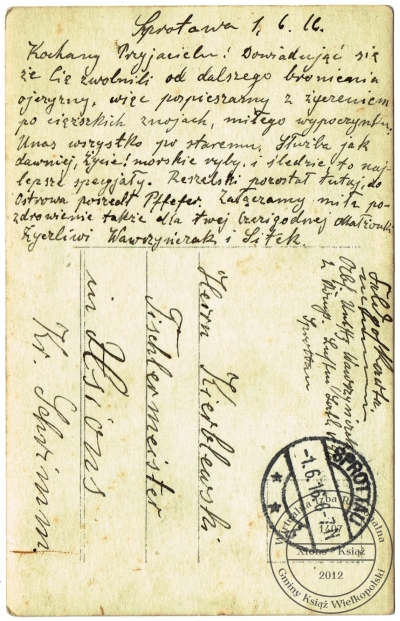 Szprotawa 1. 6. 16.
Kochany Przyjacielu! Dowiadując się
że Cię zwolnili od dalszego bronienia
ojczyzny, więc pospieszamy z życzeniem
po ciężkich znojach, miłego wypoczynku.
U nas wszystko po staremu. Służba jak
dawniej, życie i morskie ryby i śledzie to naj-
lepsze specyjały. Reszelski pozostał tutaj, do
Ostrowa poszedł Pfefer. Załączamy miłe po-
zdrowienie także dla twej Czcigodnej Małżonki
Życzliwi Wawrzyniak i Sitek.
Feldpostkarte
Abs. Untffz Wawrzyniak
Sprottau
Herrn Kierblewski
Tischlermeister
in Xions
Kr. Schrimm.
SPROTTAU
1.6.16.6-7N
Wirtualna Izba Regionalna
1407
Xions - Książ
2012
Gminy Książ Wielkopolski